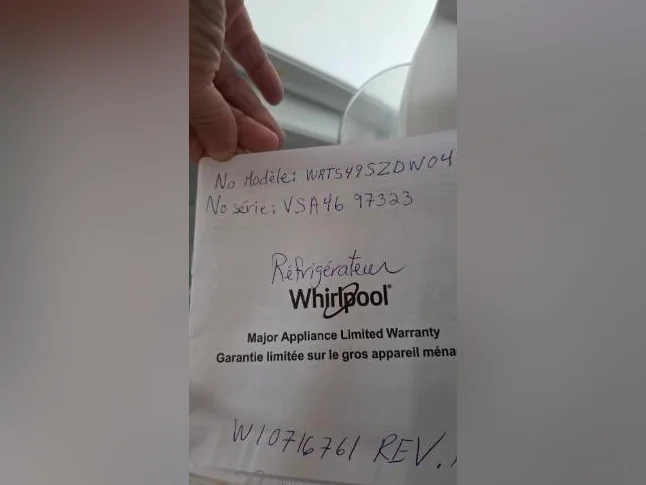 No Modèle: WRT549SZDW04
No série: VSA46 97323
Réfrigérateur
Whirlpool®
Major Appliance Limited Warranty
Garantie limitée sur le gros appareil ména
W10716761 REV.